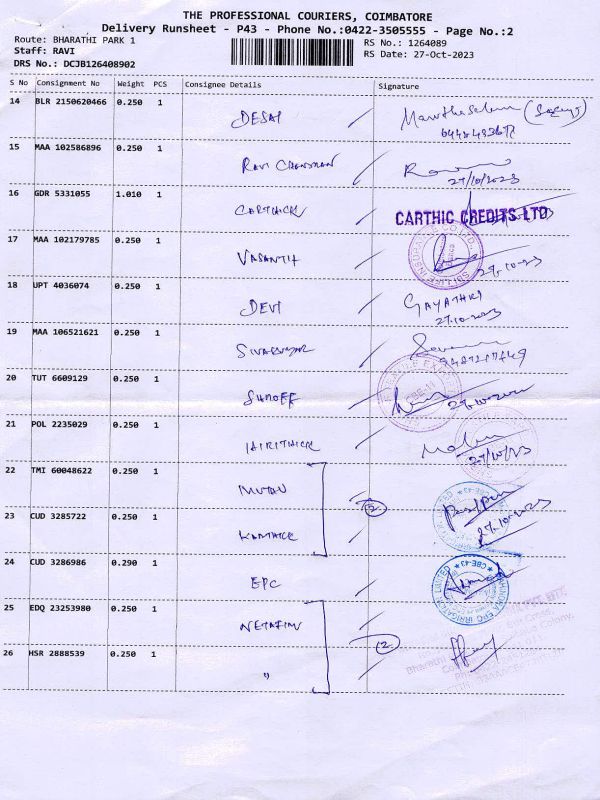 THE PROFESSIONAL COURIERS, COIMBATORE
Delivery Runsheet - P43 - Phone No.:0422-3505555 - Page No.:2
Route: BHARATHI PARK 1 RS No.: 1264089
Staff: RAVI RS Date: 27-Oct-2023
DRS No.: DCJB126408902
S No Consignment No Weight PCS Consignee Details Signature
14 BLR 2150620466 0.250 1 DESAI
15 MAA 102586896 0.250 1 RAVI CHANDRAN
27/10/2023
16 GDR 5331055 1.010 1 CARTHICK CARTHIC CREDITS LTD
17 MAA 102179785 0.250 1 VASANTH 27-10-23
18 UPT 4036074 0.250 1 DEVI GAYATHRI
27.10.2023
19 MAA 106521621 0.250 1
20 TUT 6609129 0.250 1 SHROFF 27-10-2023
21 POL 2235029 0.250 1 HIRITHICK
27/10/23
22 TMI 60048622 0.250 1
23 CUD 3285722 0.250 1 KARTHICK 27-10-2023
24 CUD 3286986 0.290 1 EPC
25 EDQ 23253980 0.250 1 NETAFIM
26 HSR 2888539 0.250 1 "